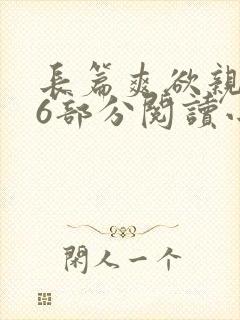 長篇爽欲親
6部分閱讀小
閑人一个